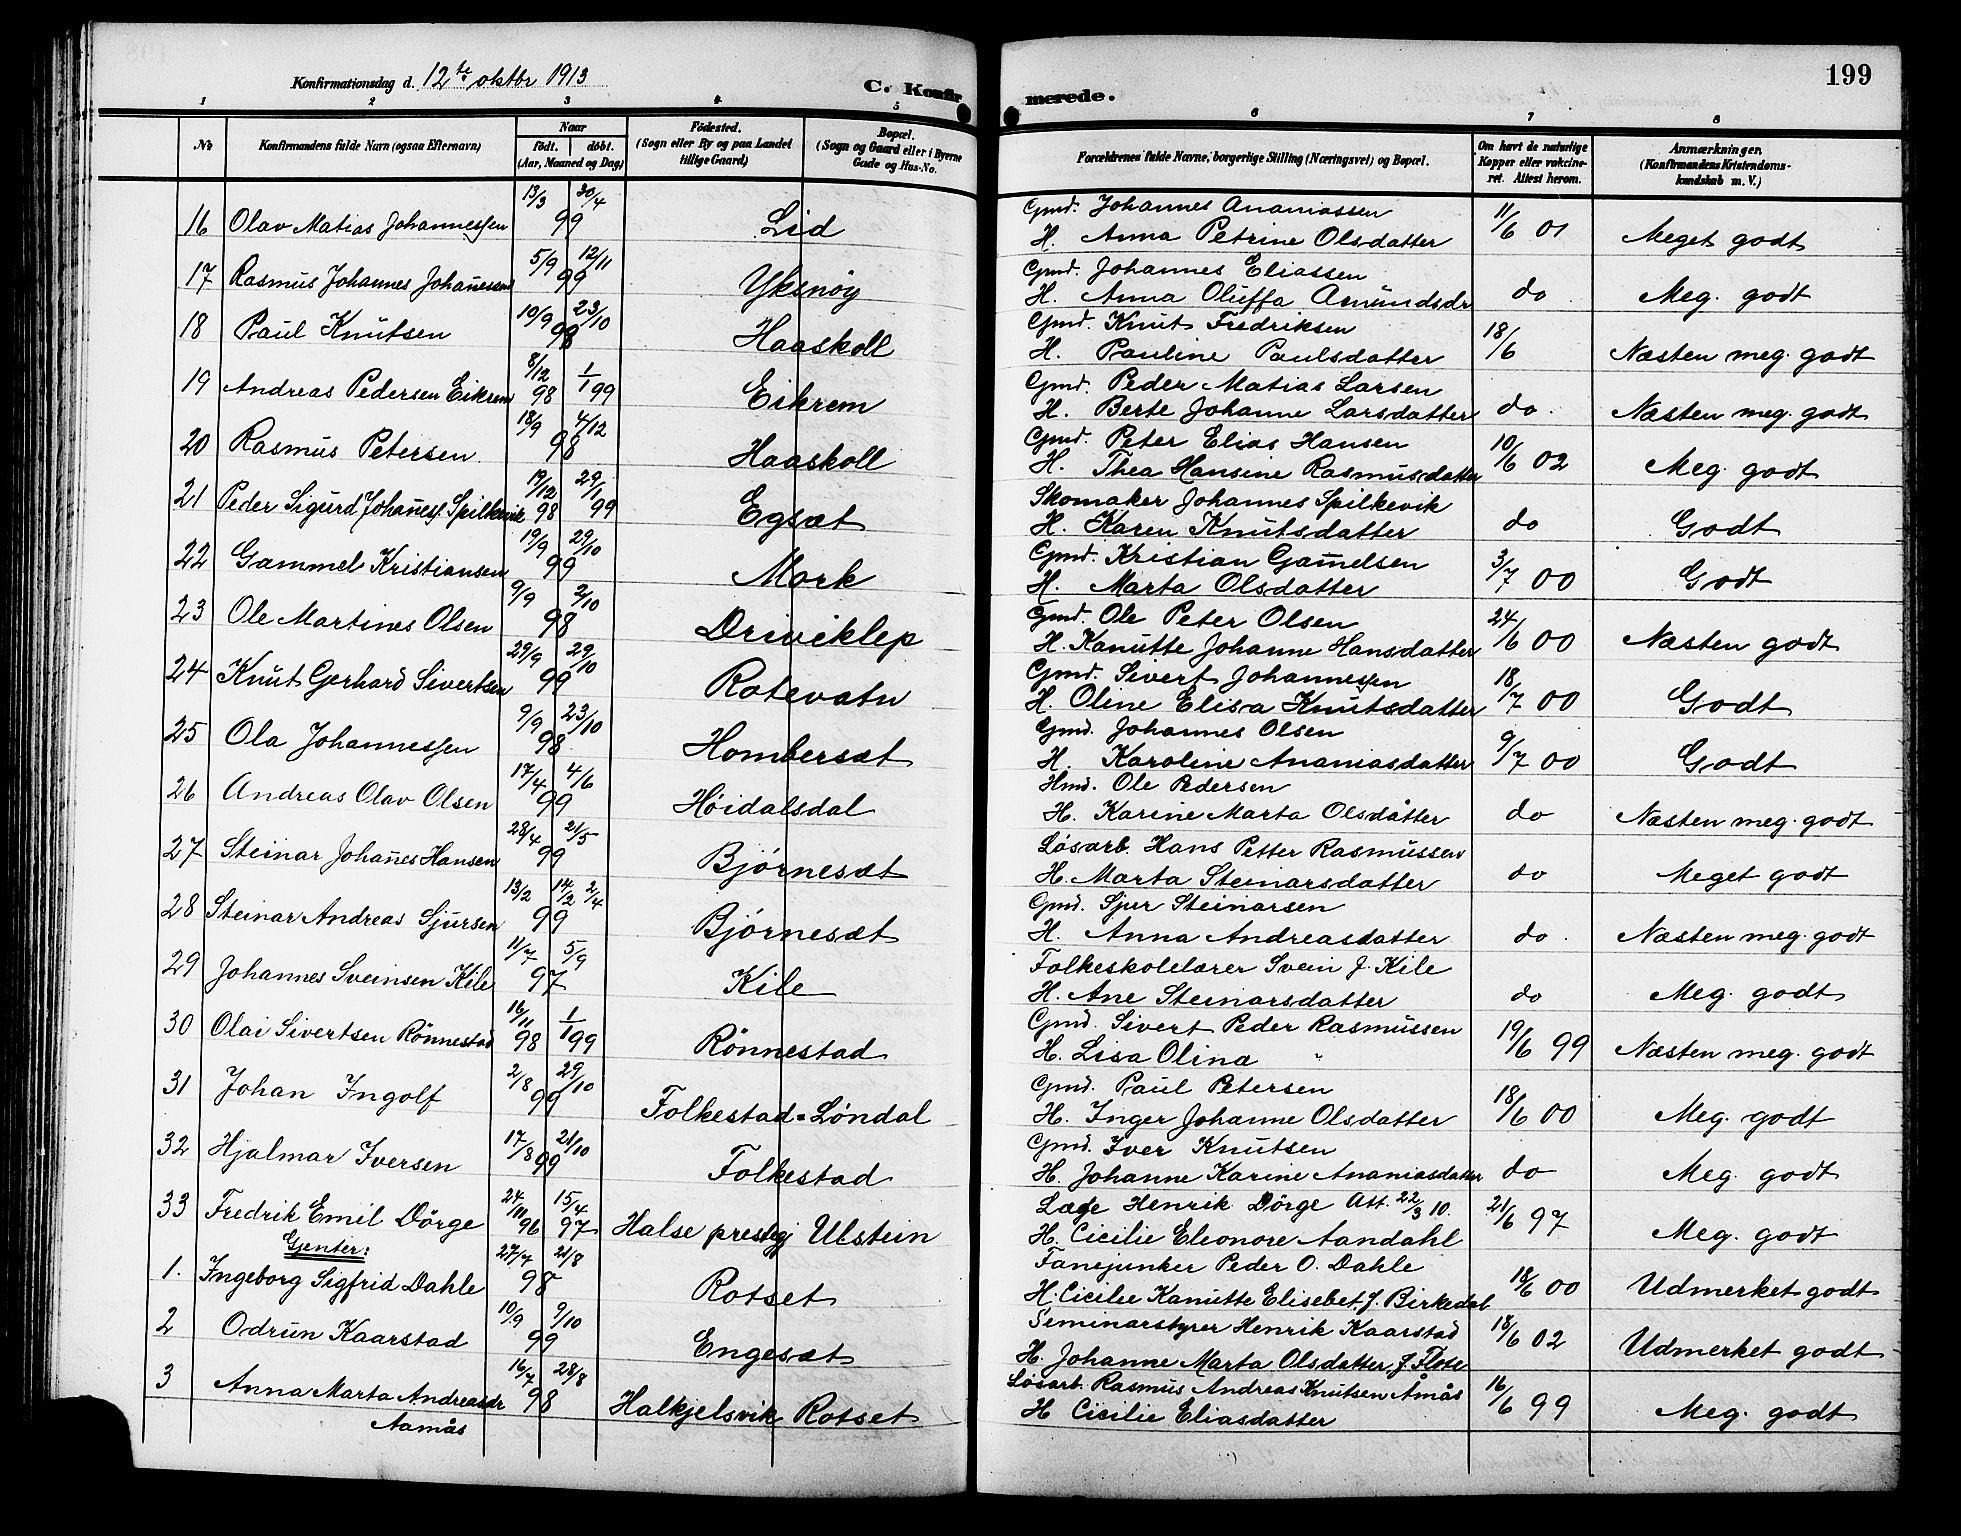 199
Konfirmationsdag d. 12te oktbr 1913
C. Konfirmerede.
1 2 3 4 5 6 7 8
No
Konfirmandens fulde Navn (ogsaa Efternavn)
Naar
født. døbt.
(Aar, Maaned og Dag)
Fødested.
(Sogn eller By og paa Landet
tillige Gaard)
Bopæl.
(Sogn og Gaard eller i Byerne
Gade og Hus-No.
Forældrenes fulde Navne, borgerlige Stilling (Næringsvei) og Bopæl.
Om havt de naturlige
Kopper eller vakcine-
ret. Attest herom.
Anmærkninger.
(Konfirmandens Kristendoms-
kundskab m. V.)
16 Olav Matias Johannessen 13/3 30/4 99 Lid Gmd. Johannes Ananiassen
H. Anna Petrine Olsdatter 11/6 01 Meget godt
17 Rasmus Johannes Johanesen 5/9 12/11 99 Yksnøy Gmd. Johannes Eliassen
H. Anna Oluffa Amundsdr do Meg. godt
18 Paul Knutsen 10/9 23/10 98 Haaskoll Gmd. Knut Fredriksen
H. Pauline Paulsdatter 18/6 Næsten meg. godt
19 Andreas Pedersen Eikrem 8/12 98 1/1 99 Eikrem Gmd. Peder Matias Larsen
H. Berte Johanne Larsdatter do. Næsten meg. godt
20 Rasmus Petersen 18/9 4/12 98 Haaskoll Gmd. Peter Elias Hansen
H. Thea Hansine Rasmusdatter 10/6 02 Meg. godt
21 Peder Sigurd Johanes Spilkevik 19/12 98 29/1 99 Egsæt Skomaker Johannes Spilkevik
H. Karen Knutsdatter do Godt
22 Gammel Kristiansen 19/9 29/10 99 Mork Gmd. Kristian Gamelsen
H. Marta Olsdatter 3/7 00 Godt
23 Ole Martines Olsen 9/9 2/10 98 Driviklep Gmd. Ole Peter Olsen
H. Kanutte Johanne Hansdatter 24/6 00 Næsten godt
24 Knut Gerhard Sivertsen 29/9 29/10 99 Rotevatn Gmd. Sivert Johannessen
H. Oline Elisa Knutsdatter 18/7 00 Godt
25 Ola Johannessen 9/9 23/10 98. Hombersæt Gmd. Johannes Olsen
H. Karoline Ananiasdatter 9/7 00 Godt
26 Andreas Olav Olsen 17/4 4/6 99 Høidalsdal Hmd. Ole Pedersen
H. Karine Marta Olsdatter do Næsten meg. godt
27 Steinar Johanes Hansen 28/4 21/5 99 Bjørnesæt Løsarb. Hans Petter Rasmussen
H. Marta Steinarsdatter do Meget godt
28 Steinar Andreas Sjursen 13/2 14/2 2/4 99 Bjørnesæt Gmd. Sjur Steinarsen
H. Anna Andreasdatter do. Næsten meg. godt
29 Johannes Sveinsen Kile 11/7 5/9 97 Kile Folkeskolelærer Svein J. Kile
H. Ane Steinarsdatter do Meg. godt
30 Olai Sivertsen Rønnestad 16/11 98 1/1 99 Rønnestad Gmd. Sivert Peder Rasmussen
H. Lisa Olina " 19/6 99 Næsten meg. godt
31 Johan Ingolf 2/8 29/10 99 Folkestad=Løndal Gmd. Paul Petersen
H. Inger Johanne Olsdatter 18/6 00 Meg. godt
32 Hjalmar Iversen 17/8 21/10 99 Folkestad Gmd. Iver Knutsen
H. Johanne Karine Ananiasdatter do Meg. godt
33 Fredrik Emil Dörge 24/11 96 15/4 97 Halse prestegj Ulstein Læge Henrik Dörge Att. 22/3 10.
H. Cicilie Eleonore Aandahl 21/6 97 Meg. godt
Gjenter:
1. Ingeborg Sigfrid Dahle 27/7 21/8 98 Rotset Fanejunker Peder O. Dahle
H. Cicilie Kanutte Elisebet J. Birkedal 18/6 00 Udmerket godt
2 Odrun Kaarstad 10/9 9/10 99 Engesæt Seminarstyrer Henrik Kaarstad
H. Johanne Marta Olsdatter, f. Flote 18/6 02 Udmerket godt
3 Anna Marta Andreasdr 16/7 28/8 98 Halkjelsvik Rotset Løsarb. Rasmus Andreas Knutsen Åmås
Aamås H Cicilie Eliasdatter 16/6 99 Meg. godt